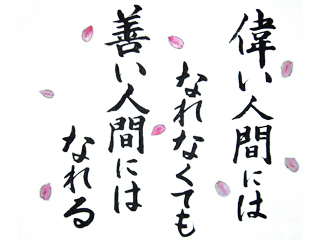 偉い人間には
なれなくても
善い人間には
なれる